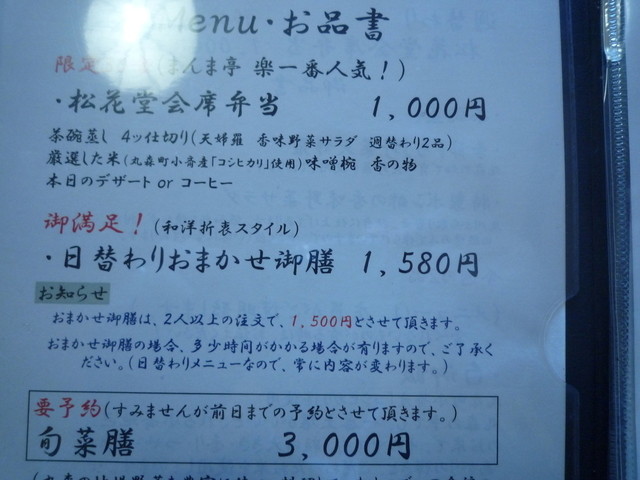 Menu・お品書
限定 (まんま亭 楽一番人気！)
・松花堂会席弁当 1,000円
茶碗蒸し 4ッ仕切り(天婦羅 香味野菜サラダ 週替わり2品)
厳選した米(丸森町小斎産「コシヒカリ」使用)味噌椀 香の物
本日のデザート or コーヒー
御満足！(和洋折衷スタイル)
・日替わりおまかせ御膳 1,580円
お知らせ
おまかせ御膳は、2人以上の注文で、1,500円とさせて頂きます。
おまかせ御膳の場合、多少時間がかかる場合が有りますので、ご了承く
ださい。(日替わりメニューなので、常に内容が変わります。)
要予約(すみませんが前日までの予約とさせて頂きます。)
旬菜膳 3,000円